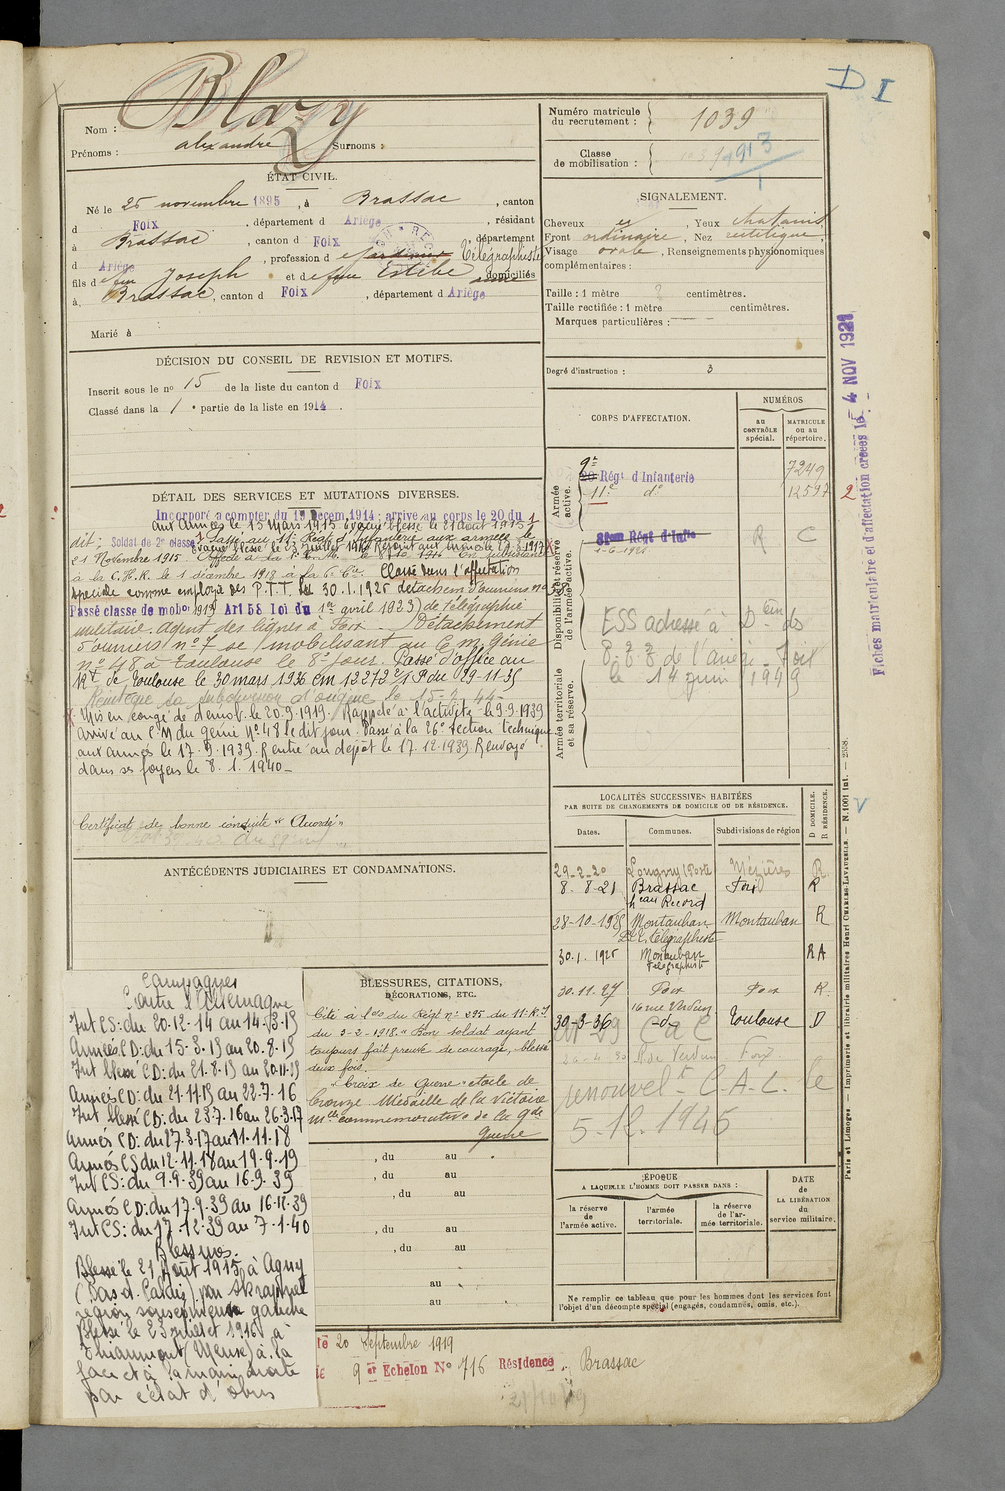 D I
Nom : Blazy
Prénoms : alexandre Surnoms :
Numéro matricule du recrutement : 1039
Classe de mobilisation : 1913
ÉTAT CIVIL.
Né le 25 novembre 1895, à Brassac, canton
d Foix, département d Ariège, résidant
à Brassac, canton d Foix, département
d Ariège, profession d Télégraphiste
fils d feu Joseph et d feu Estèbe domiciliés
à Brassac, canton d Foix, département d Ariège
Marié à
SIGNALEMENT.
Cheveux, Yeux chatains
Front ordinaire, Nez rectiligne,
Visage ovale, Renseignements physionomiques
complémentaires :
Taille : 1 mètre centimètres.
Taille rectifiée : 1 mètre centimètres.
Marques particulières :
Degré d'instruction : 3
DÉCISION DU CONSEIL DE REVISION ET MOTIFS.
Inscrit sous le no 15 de la liste du canton d Foix
Classé dans la 1 e partie de la liste en 1914.
DÉTAIL DES SERVICES ET MUTATIONS DIVERSES.
Incorporé à compter du 19 Décem. 1914 : arrivé au corps le 20 du
aux Armées le 15 Mars 1915 Evacué blessé le 21 aout 1915
dit : Soldat de 2e classe Passé au 11e Régt d'infanterie aux armées le
Evacué blessé le 23 juillet 1916 Rejoint aux armées le 27.3.1917
21 Novembre 1915.
à la C.H.R. le 1 décembre 1918 à la 6e Cie. Classé dans l'affectation
spéciale comme employé des P.T.T. le 30.1.1926 détachem d'ouvriers no 58
Passé classe de mobon 1913 Art 58 Loi du 1er avril 1923) de télégraphie
militaire. Agent des lignes à Foix. Détachement
d'ouvriers no 7 se mobilisant au C.M. Génie
no 48 à Toulouse le 8e jour. Passé d'office au
Rt de Toulouse le 30 mars 1936 CM 12372 1/P du 29-11-35
Réintègre sa subdivision d'origine le 15-2-44-
Mis en congé de démob. le 20.9.1919. Rappelé à l'activité le 9.9.1939
Arrivé au C.M du génie No 48 le dit jour. Passé à la 26e section technique
aux armées le 17.9.1939. Rentré au dépôt le 17.12.1939 Renvoyé
dans ses foyers le 8.1.1940_
Certificat de bonne conduite "Accordé"
CORPS D'AFFECTATION.
NUMÉROS
au CONTRÔLE spécial.
MATRICULE ou au répertoire.
Armée active.
9e
20 Régt d'Infanterie 7249
11e do 12597 2
Disponibilité et réserve de l'armée active.
Régt d'Infie R C
1-6-1921
ESS adressé à Don des
P.T.T. de l'Ariège - Foix
le 14 juin 1949
Armée territoriale et sa réserve.
Fiches matriculaire et d'affectation créées le 4 NOV 1921
LOCALITÉS SUCCESSIVES HABITÉES
PAR SUITE DE CHANGEMENTS DE DOMICILE OU DE RÉSIDENCE.
Dates. Communes. Subdivisions de région D DOMICILE. R RÉSIDENCE.
29-2-20 Longwy (Poste Mézières R
8-8-21 Brassac Foix R
heau Record
28-10-1925 Montauban Montauban R
télégraphiste
30.1.1926 Montauban RA
Télégraphiste
30.11.27 Foix Foix R.
16 rue Verdun
30-3-36 do Toulouse D
R de Verdun Foix
renouvelt C.A.L. le
5.12.1945
ANTÉCÉDENTS JUDICIAIRES ET CONDAMNATIONS.
Campagnes
Contre l'Allemagne
Int CS : du 20-12-14 au 14-3-15
Armées CD : du 15-3-15 au 20.8.15
Int blessé CD : du 21-8-15 au 20-11-15
Armées CD : du 21-11-15 au 22.7.16
Int blessé CD : du 23.7.16 au 26-3-17
Armées CD : du 27.3.17 au 11.11.18
Armées CS du 12-11-18 au 19.9.19
Int CS : du 9.9.39 au 16.9.39
Armées CD : du 17.9.39 au 16-12-39
Int CS : du 17-12-39 au 7-1-40
Blessures.
Blessé le 21 Août 1915 à Agny
(Pas d. Calais) par shrapnel
région gauche
Blessé le 23 juillet 1916 à
Thiaumont (Meuse) à la
face et à la main droite
par éclat d'obus
BLESSURES, CITATIONS,
DÉCORATIONS, ETC.
Cité à l'o du Régt no 295 du 11e R.I
du 3-2-1918. "Bon soldat ayant
toujours fait preuve de courage, blessé
deux fois.
Croix de Guerre étoile de
bronze Médaille de la Victoire
Mlle commémorative de la Gde
Guerre
, du au
, du au
, du au
, du au
, du au
au
au
ÉPOQUE
A LAQUELLE L'HOMME DOIT PASSER DANS :
la réserve de l'armée active.
l'armée territoriale.
la réserve de l'armée territoriale.
DATE de LA LIBÉRATION du service militaire.
Ne remplir ce tableau que pour les hommes dont les services font
l'objet d'un décompte spécial (engagés, condamnés, omis, etc.).
té 20 Septembre 1919
9 er Echelon No 716 Résidence Brassac
Paris et Limoges — Imprimerie et librairie militaires Henri CHARLES-LAVAUZELLE. — N. 1001 int. — 2558.